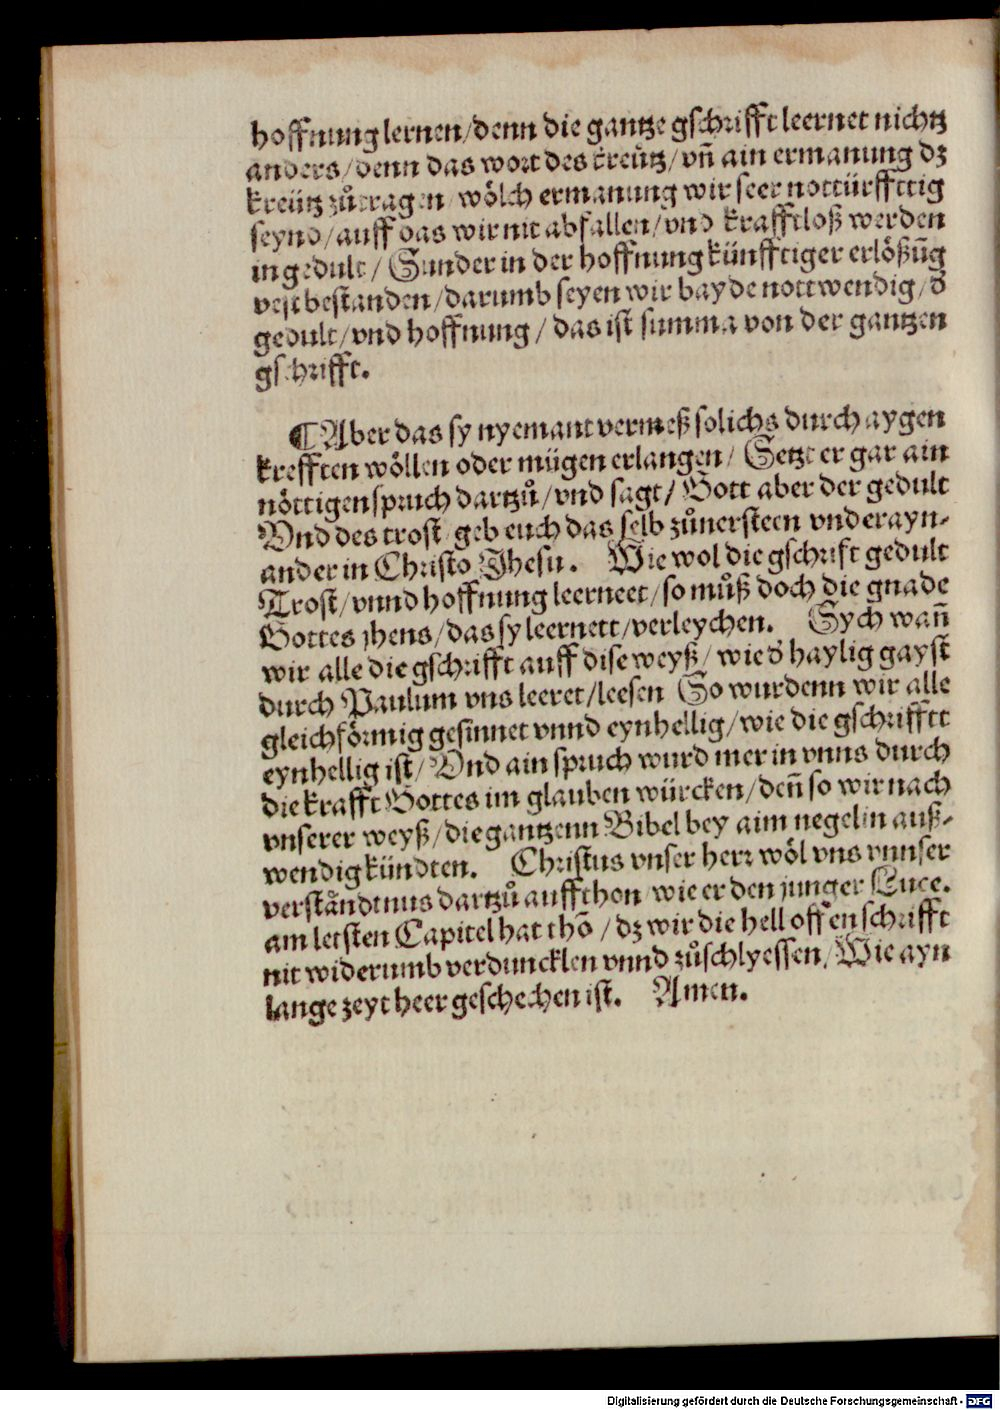 hoffnung lernen/denn die gantze gschrifft leernet nichtz
anders/denn das wort des creütz/vñ ain ermanung dz
kreütz zůtragen wölch ermanung wir seer nottürffttig
seynd/auff das wir nit abfallen/vnd krafftloß werden
in gedult/ Sunder in der hoffnung künfftiger erlößūg
vest bestanden/darumb seyen wir bayde nottwendig/d̄
gedult/vnd hoffnung/ das ist summa von der gantzen
gschrifft.
¶Aber das sy nyemant vermeß solichs durch aygen
krefften wöllen oder mügen erlangen/ Setzt er gar ain
nöttigen spruch dartzů/vnd sagt/ Gott aber der gedult
Vnd des trost/geb euch das selb zůuersteen vnderayn-
ander in Christo Jhesu. Wie wol die gschrift gedult
Trost/vnnd hoffnung leerneet/so můß doch die gnade
Gottes jhens/das sy leernett/verleychen. Sych wañ
wir alle die gschrifft auff dise weyß/ wie d̄ haylig gayst
durch Paulum vns leeret/leesen So wurdenn wir alle
gleichförmig gesinnet vnnd eynhellig/wie die gschrifftt
eynhellig ist/ Vnd ain spruch wurd mer in vnns durch
die krafft Gottes im glauben würcken/deñ so wir nach
vnserer weyß/die gantzenn Bibel bey aim negelin auß-
wendig kündten. Christus vnser herr wöl vns vnnser
verståndtnus dartzů auffthon/wie er den junger Luce.
am letsten Capitel hat thō/ dz wir die hell offen schrifft
nit widerumb verduncklen vnnd zůschlyessen/Wie ayn
lange zeyt heer geschechen ist. Amen.
Digitalisierung gefördert durch die Deutsche Forschungsgemeinschaft - DFG